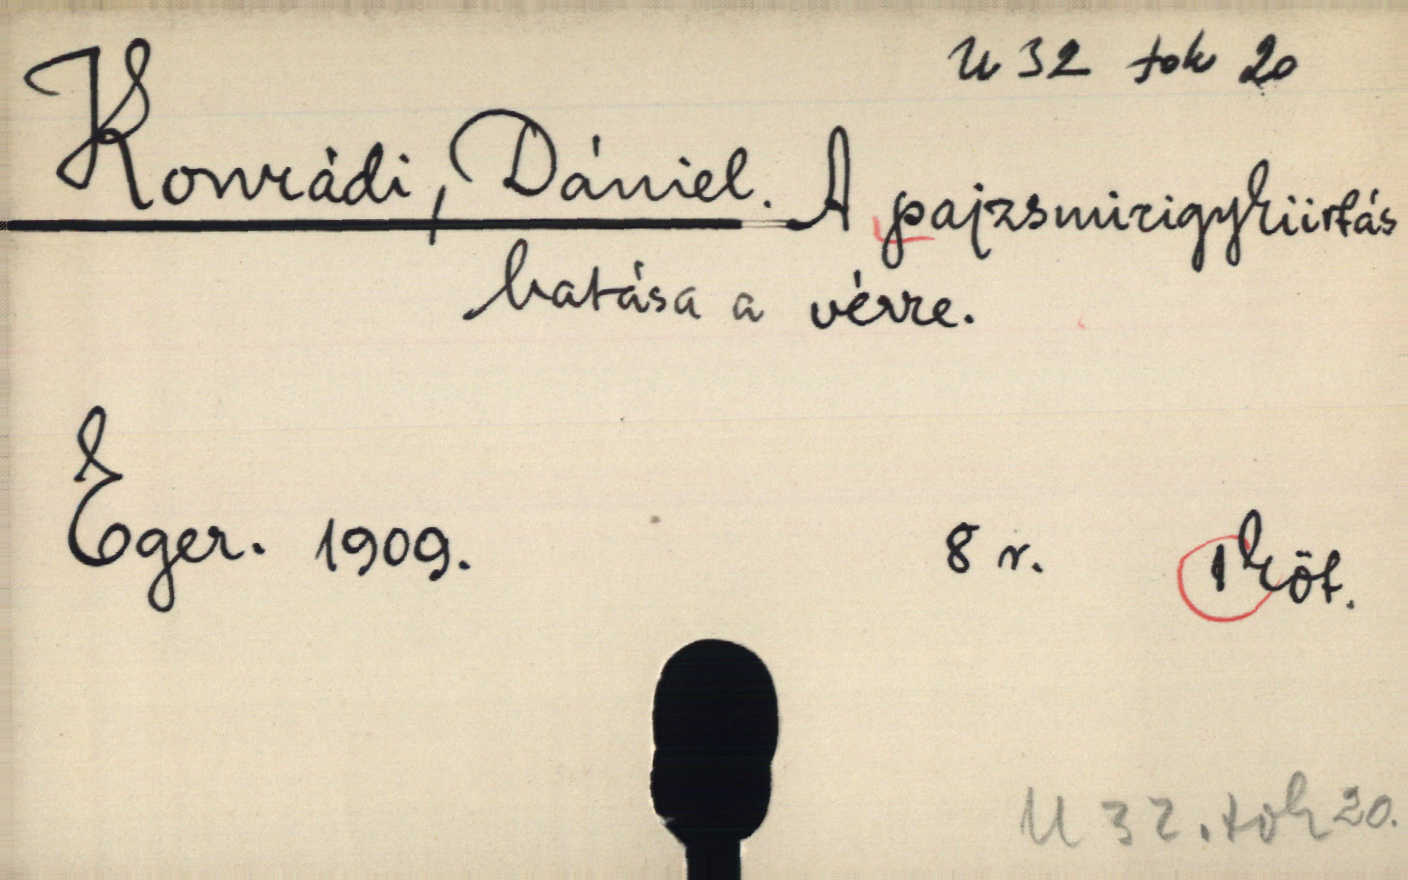 U 32 tok 20
Konrádi, Dániel. A pajzsmirigykiirtás
hatása a vérre.
Eger. 1909. 8 r. 1 köt.
U 32. tok 20.